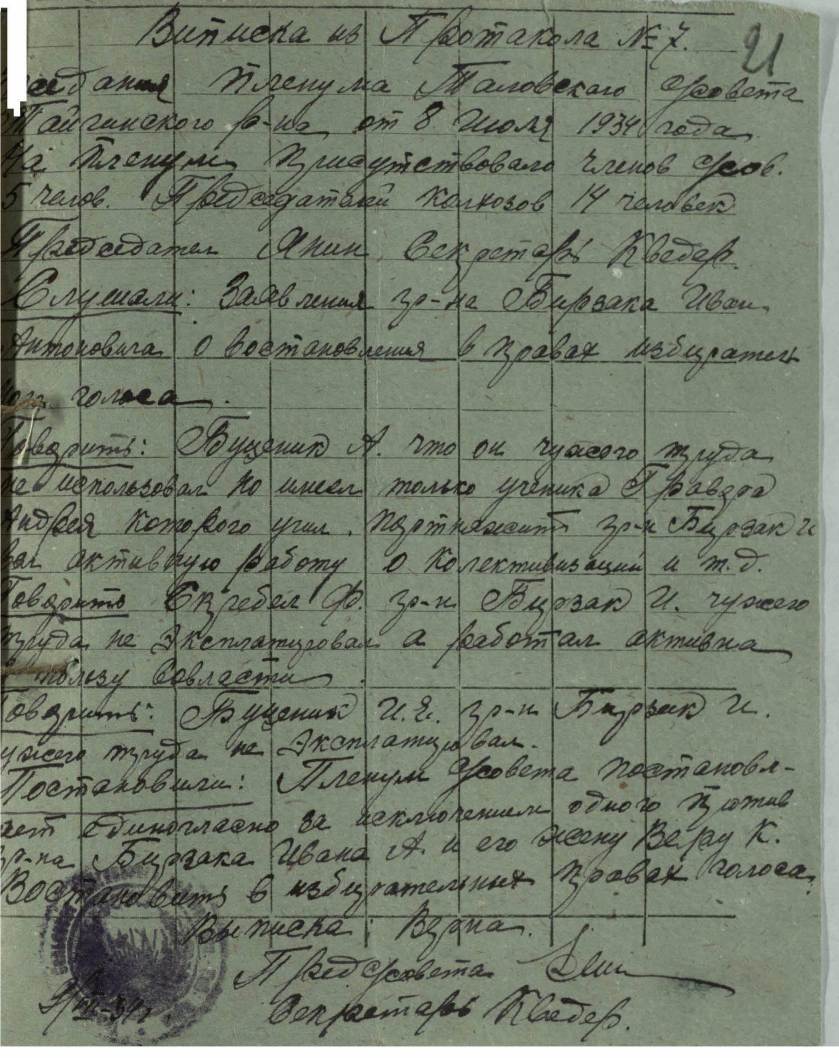 21
Виписка из Протакола № 7.
седания пленума Таловского С/совета
Тайгинского р-на от 8 Июля 1934 года
На пленуми присутствовало членов С/сов.
5 челов. Председателей колхозов 14 человек
Председател Янин Секретарь Кведер.
Слушали: Заявления гр-на Бирзака Иван
Антоновича о востановления в правах избирателн
голоса.
Говорить: Буценик А. что он чужого труда
не использовал но имел только ученика
Андрея которого учил. портняжит гр-н Бирзак И
вел активную работу о колективизации и т.д.
Говорить Скребел Ф. гр-н Бирзак И. чужего
труда не эксплатировал а работал активна
в пользу Совласти.
Говорить: Буценик И.Е. гр-н Бирзак И.
ужего труда не эксплатировал.
Постановили: Пленум С/совета постановл-
ает единогласно за исключением одного против
гр-на Бирзака Ивана А. и его жену Веру К.
Востановить в избирательных правах голоса.
Выписка: Верна.
Пред С/совета
Секретарь Кведер.